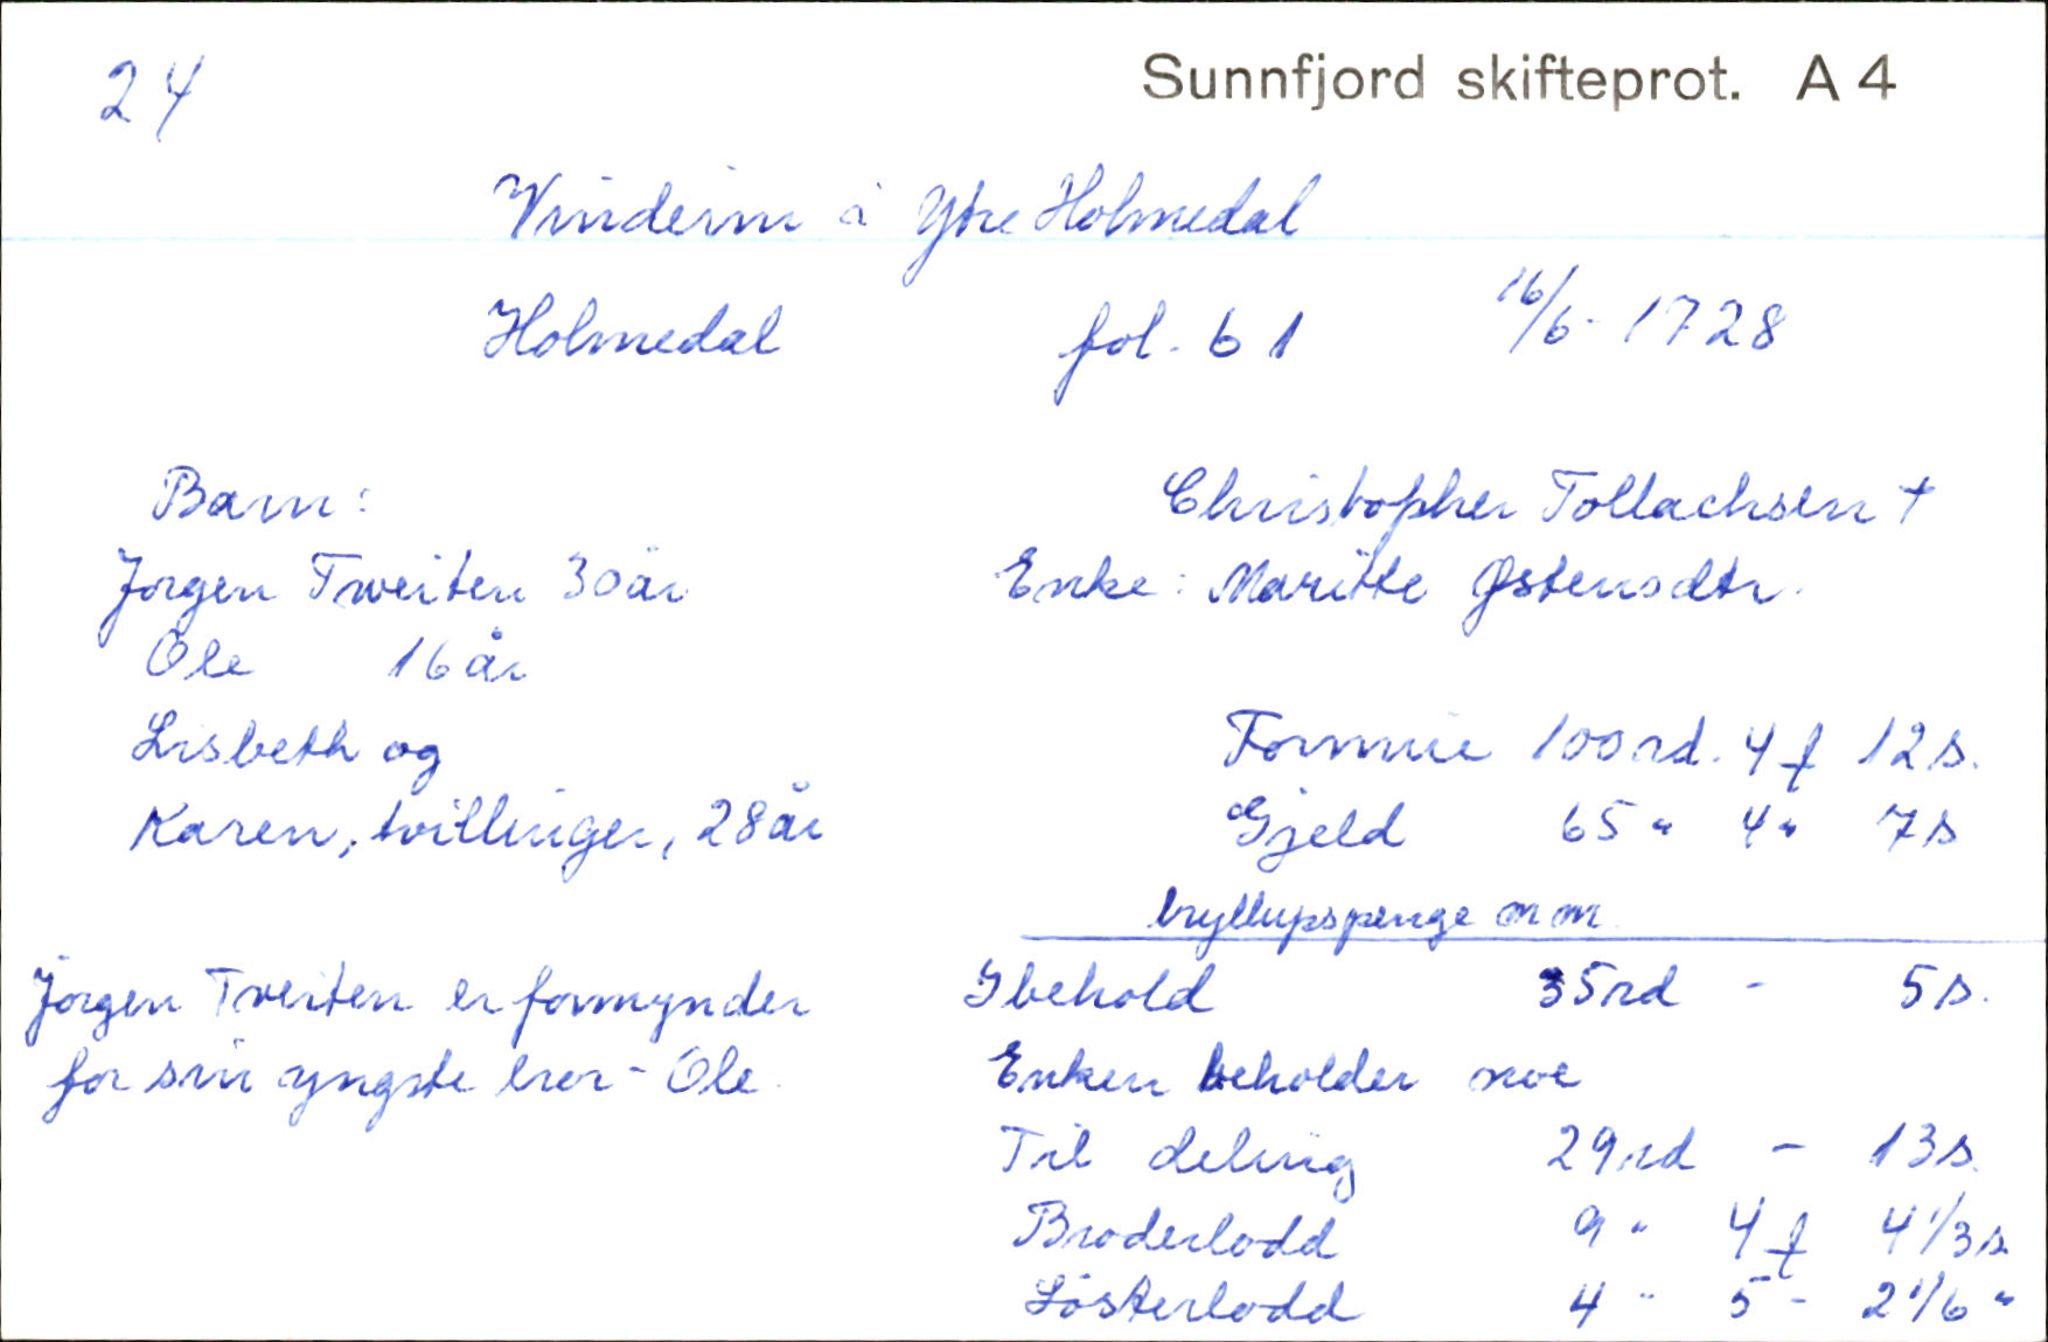 24
Sunnfjord skifteprot. A 4
Vinderim i Ytre Holmedal
Holmedal fol. 61 16/6-1728
Barn:
Jørgen Tweiten 30 år
Ole 16 år
Lisbeth og
Karen, tvillinger, 28 år
Jørgen Tveiten er formynder
for sin yngste bror - Ole.
Christopher Tollachsen †
Enke: Maritte Østensdtr.
Formue 100 rd. 4 f 12 s.
Gjeld 65 " 4 " 7 s
bryllupspenge m m
Ibehold 35 rd - 5 s.
Enken beholder noe
Til deling 29 rd - 13 s.
Broderlodd 9 " 4 f 4 1/3 s.
Sösterlodd 4 " 5 - 2 1/6 "